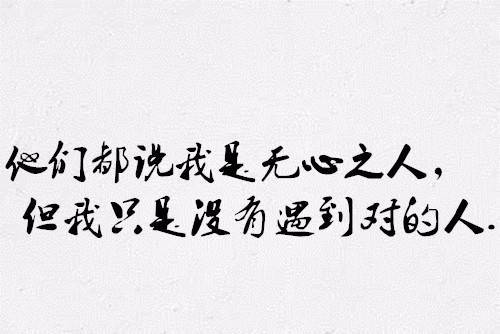 他们都说我是无心之人，
但我只是没有遇到对的人.